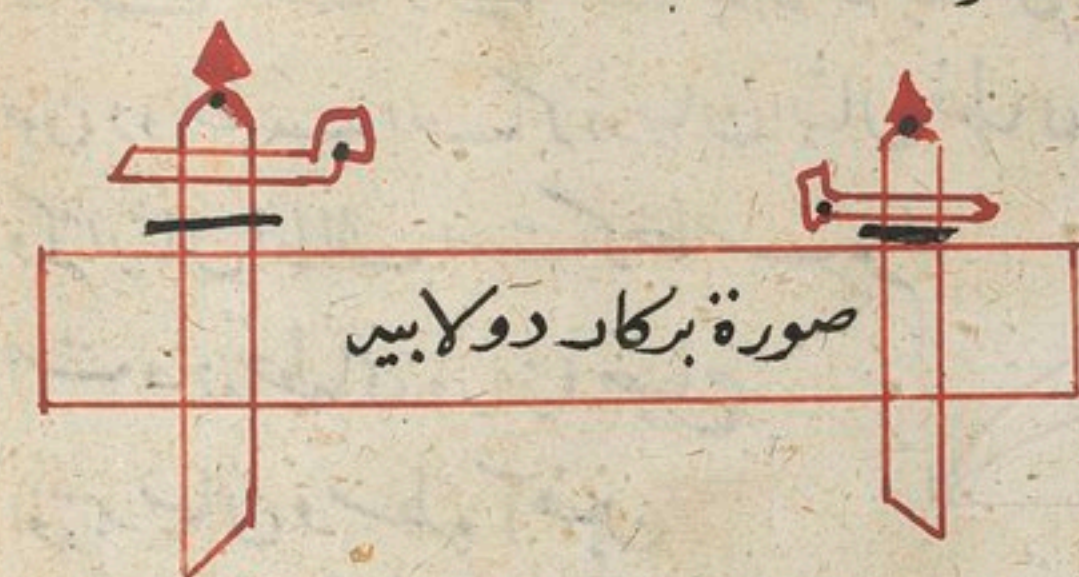 صورة بركار دولابيد